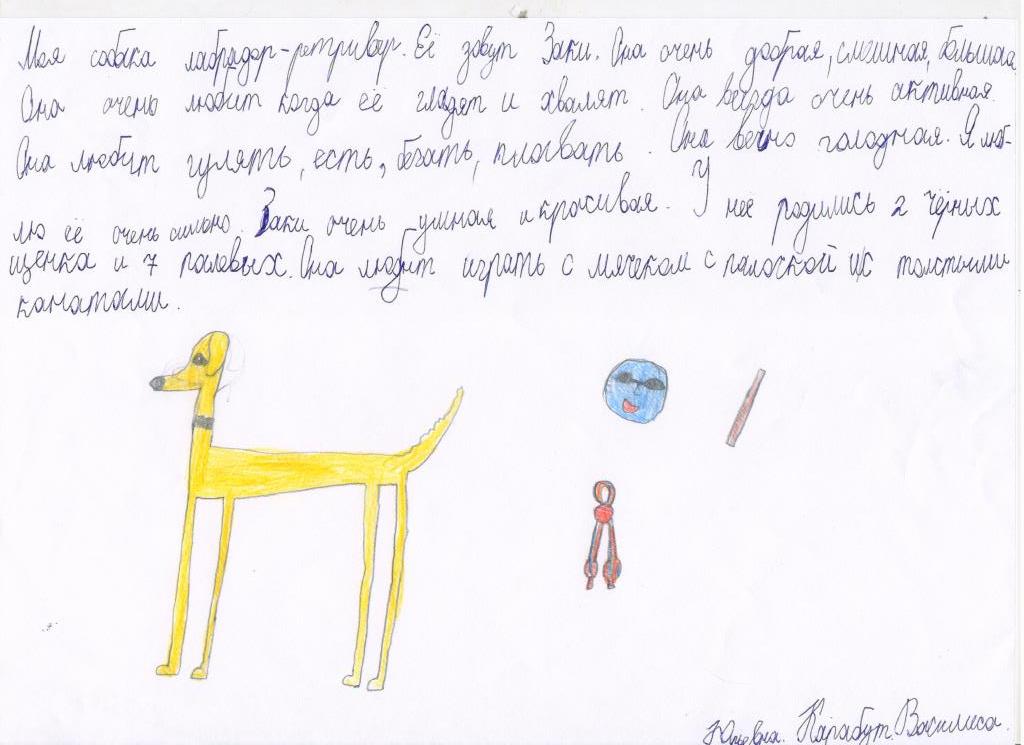 Моя собака лабрадор-ретривер. Её зовут Заки. Она очень добрая, смешная, большая
Она очень любит когда её гладят и хвалят. Она всегда очень активная.
Она любит гулять, есть, бегать, плавать. Она вечно голодная. Я люб-
лю её очень сильно. Заки очень умная и красивая. У неё родились 2 чёрных
щенка и 7 палевых. Она любит играть с мячеком с палоской и с толстыми
канатами.
Карабут Василиса.